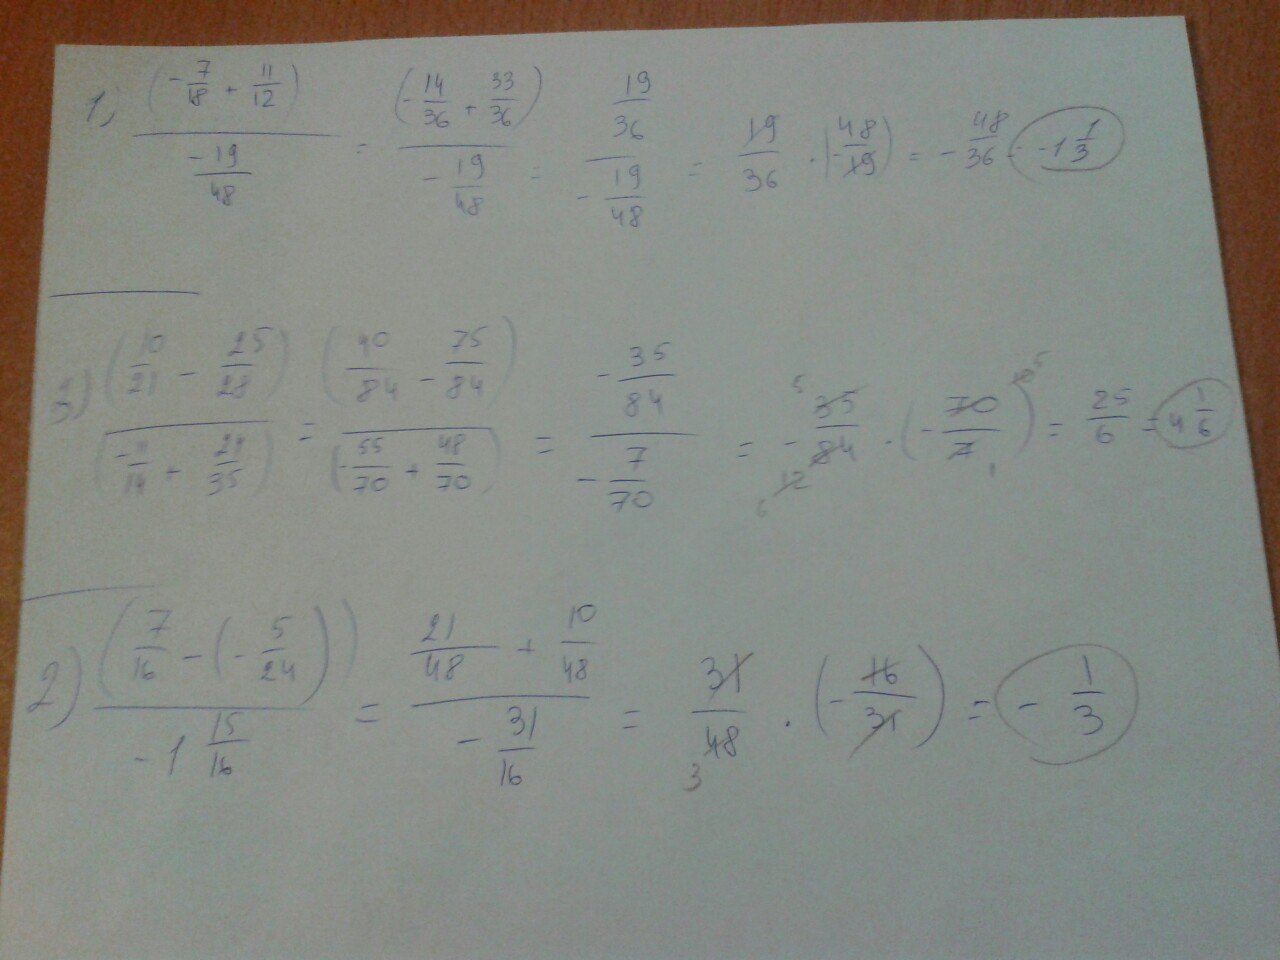 1, (-7/18 + 11/12) / (-19/48) = (-14/36 + 33/36) / (-19/48) = (19/36) / (-19/48) = 19/36 · (-48/19) = -48/36 = -1 1/3
3) (10/21 - 25/28) / (-11/14 + 24/35) = (40/84 - 75/84) / (-55/70 + 48/70) = (-35/84) / (-7/70) = -35/84 · (-70/7) = 25/6 = 4 1/6
2) (7/16 - (-5/24)) / (-1 15/16) = (21/48 + 10/48) / (-31/16) = 31/48 · (-16/31) = -1/3